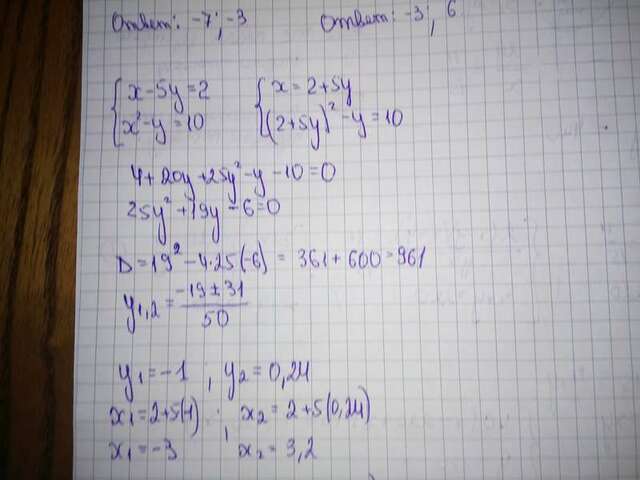 Ответ: -7; -3 Ответ: -3; 6
{x - 5y = 2 {x = 2 + 5y
{x² - y = 10 {(2 + 5y)² - y = 10
4 + 20y + 25y² - y - 10 = 0
25y² + 19y - 6 = 0
D = 19² - 4·25(-6) = 361 + 600 = 961
y₁,₂ = (-19 ± 31)/50
y₁ = -1 , y₂ = 0,24
x₁ = 2 + 5(-1) ; x₂ = 2 + 5(0,24)
x₁ = -3 , x₂ = 3,2